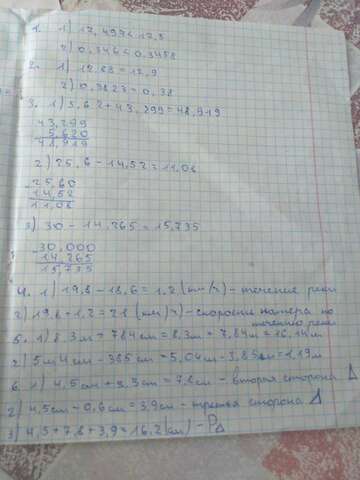 1. 1) 12,497 < 12,5
2) 0,346 < 0,3458
2. 1) 12,83 = 12,9
2) 0,3823 = 0,38
3. 1) 5,62 + 43,299 = 48,919
43,299
5,620
48,919
2) 25,6 - 14,52 = 11,08
25,60
14,52
11,08
3) 30 - 14,265 = 15,735
30,000
14,265
15,735
4. 1) 19,8 - 18,6 = 1,2 (км/ч) - течение реки
2) 19,8 + 1,2 = 21 (км/ч) - скорость катера по
течению реки
5. 1) 8,3м + 784см = 8,3м + 7,84м = 16,14м
2) 5м 4см - 385см = 5,04м - 3,85м = 1,19м
6 1) 4,5см + 3,3см = 7,8см - вторая сторона Δ
2) 4,5см - 0,6см = 3,9см - третья сторона Δ
3) 4,5 + 7,8 + 3,9 = 16,2 (см) - PΔ